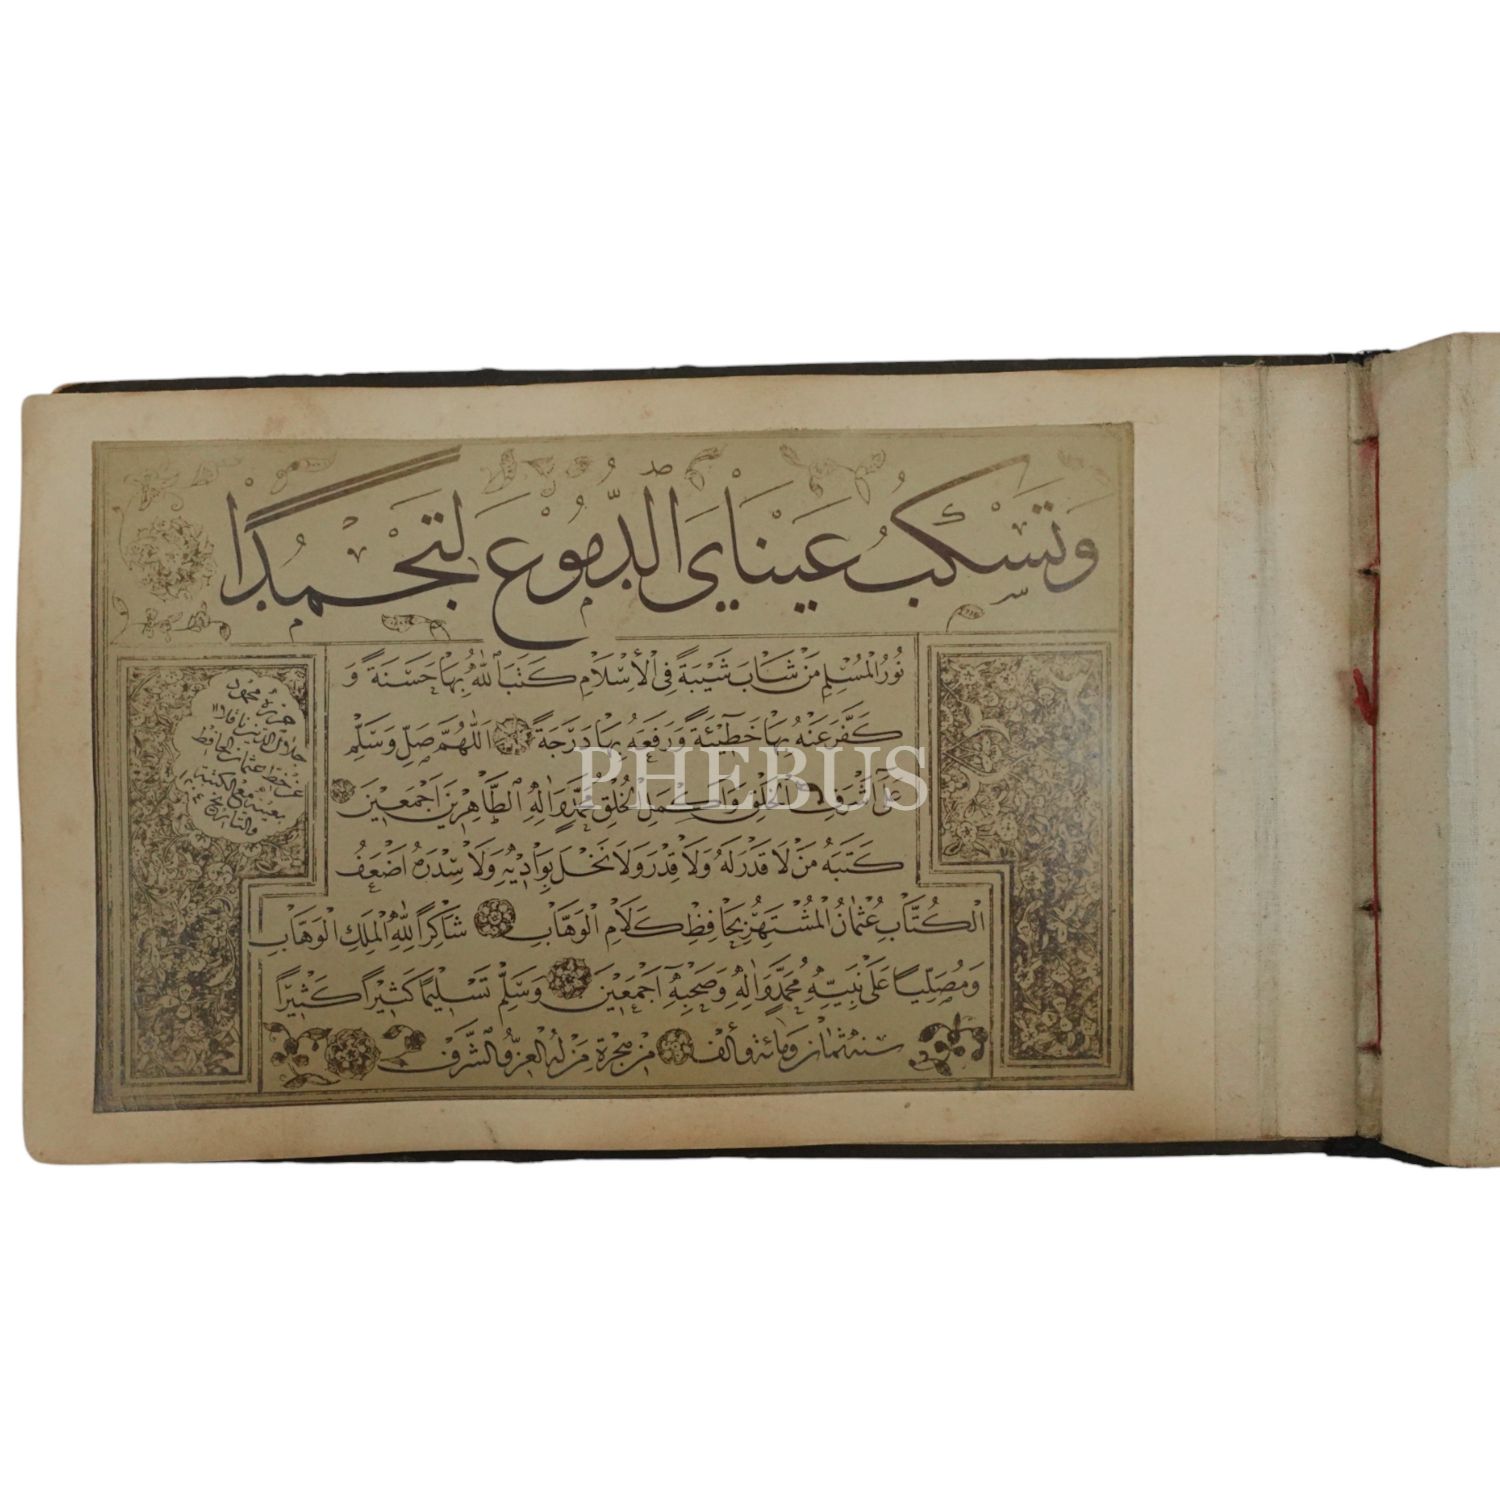 وَتَسْكُبُ عَيْنَايَ الدُّمُوْعَ لِتَجْمُدَا
نُوْرُ الْمُسْلِمِ مَنْ شَابَ شَيْبَةً فِي الْاِسْلَامِ كَتَبَ اللّٰهُ بِهَا حَسَنَةً وَ
كَفَّرَ عَنْهُ بِهَا خَطِيْئَةً وَرَفَعَهُ بِهَا دَرَجَةً اَللّٰهُمَّ صَلِّ وَسَلِّمْ
PHEBUS
عَلٰى اَشْرَفِ الْخَلْقِ وَاَكْمَلِ الْخُلُقِ مُحَمَّدٍ وَاٰلِهِ الطَّاهِرِيْنَ اَجْمَعِيْنَ
كَتَبَهُ مَنْ لَا قَدْرَ لَهُ وَلَا قِدْرَ وَلَا نَخْلَ بِوَادِيْهِ وَلَا سِدْرَهُ اَضْعَفُ
الْكُتَّابِ عُثْمَانُ الْمُشْتَهِرُ بِحَافِظِ كَلَامِ الْوَهَّابِ شَاكِرًا لِلّٰهِ الْمَلِكِ الْوَهَّابِ
وَمُصَلِّيًا عَلٰى نَبِيِّهِ مُحَمَّدٍ وَاٰلِهِ وَصَحْبِهِ اَجْمَعِيْنَ وَسَلِّمْ تَسْلِيْمًا كَثِيْرًا كَثِيْرًا
سنة ثمان ومائة وألف من هجرة من له العز والشرف
جلال الدين
عن خط عثمان الحافظ